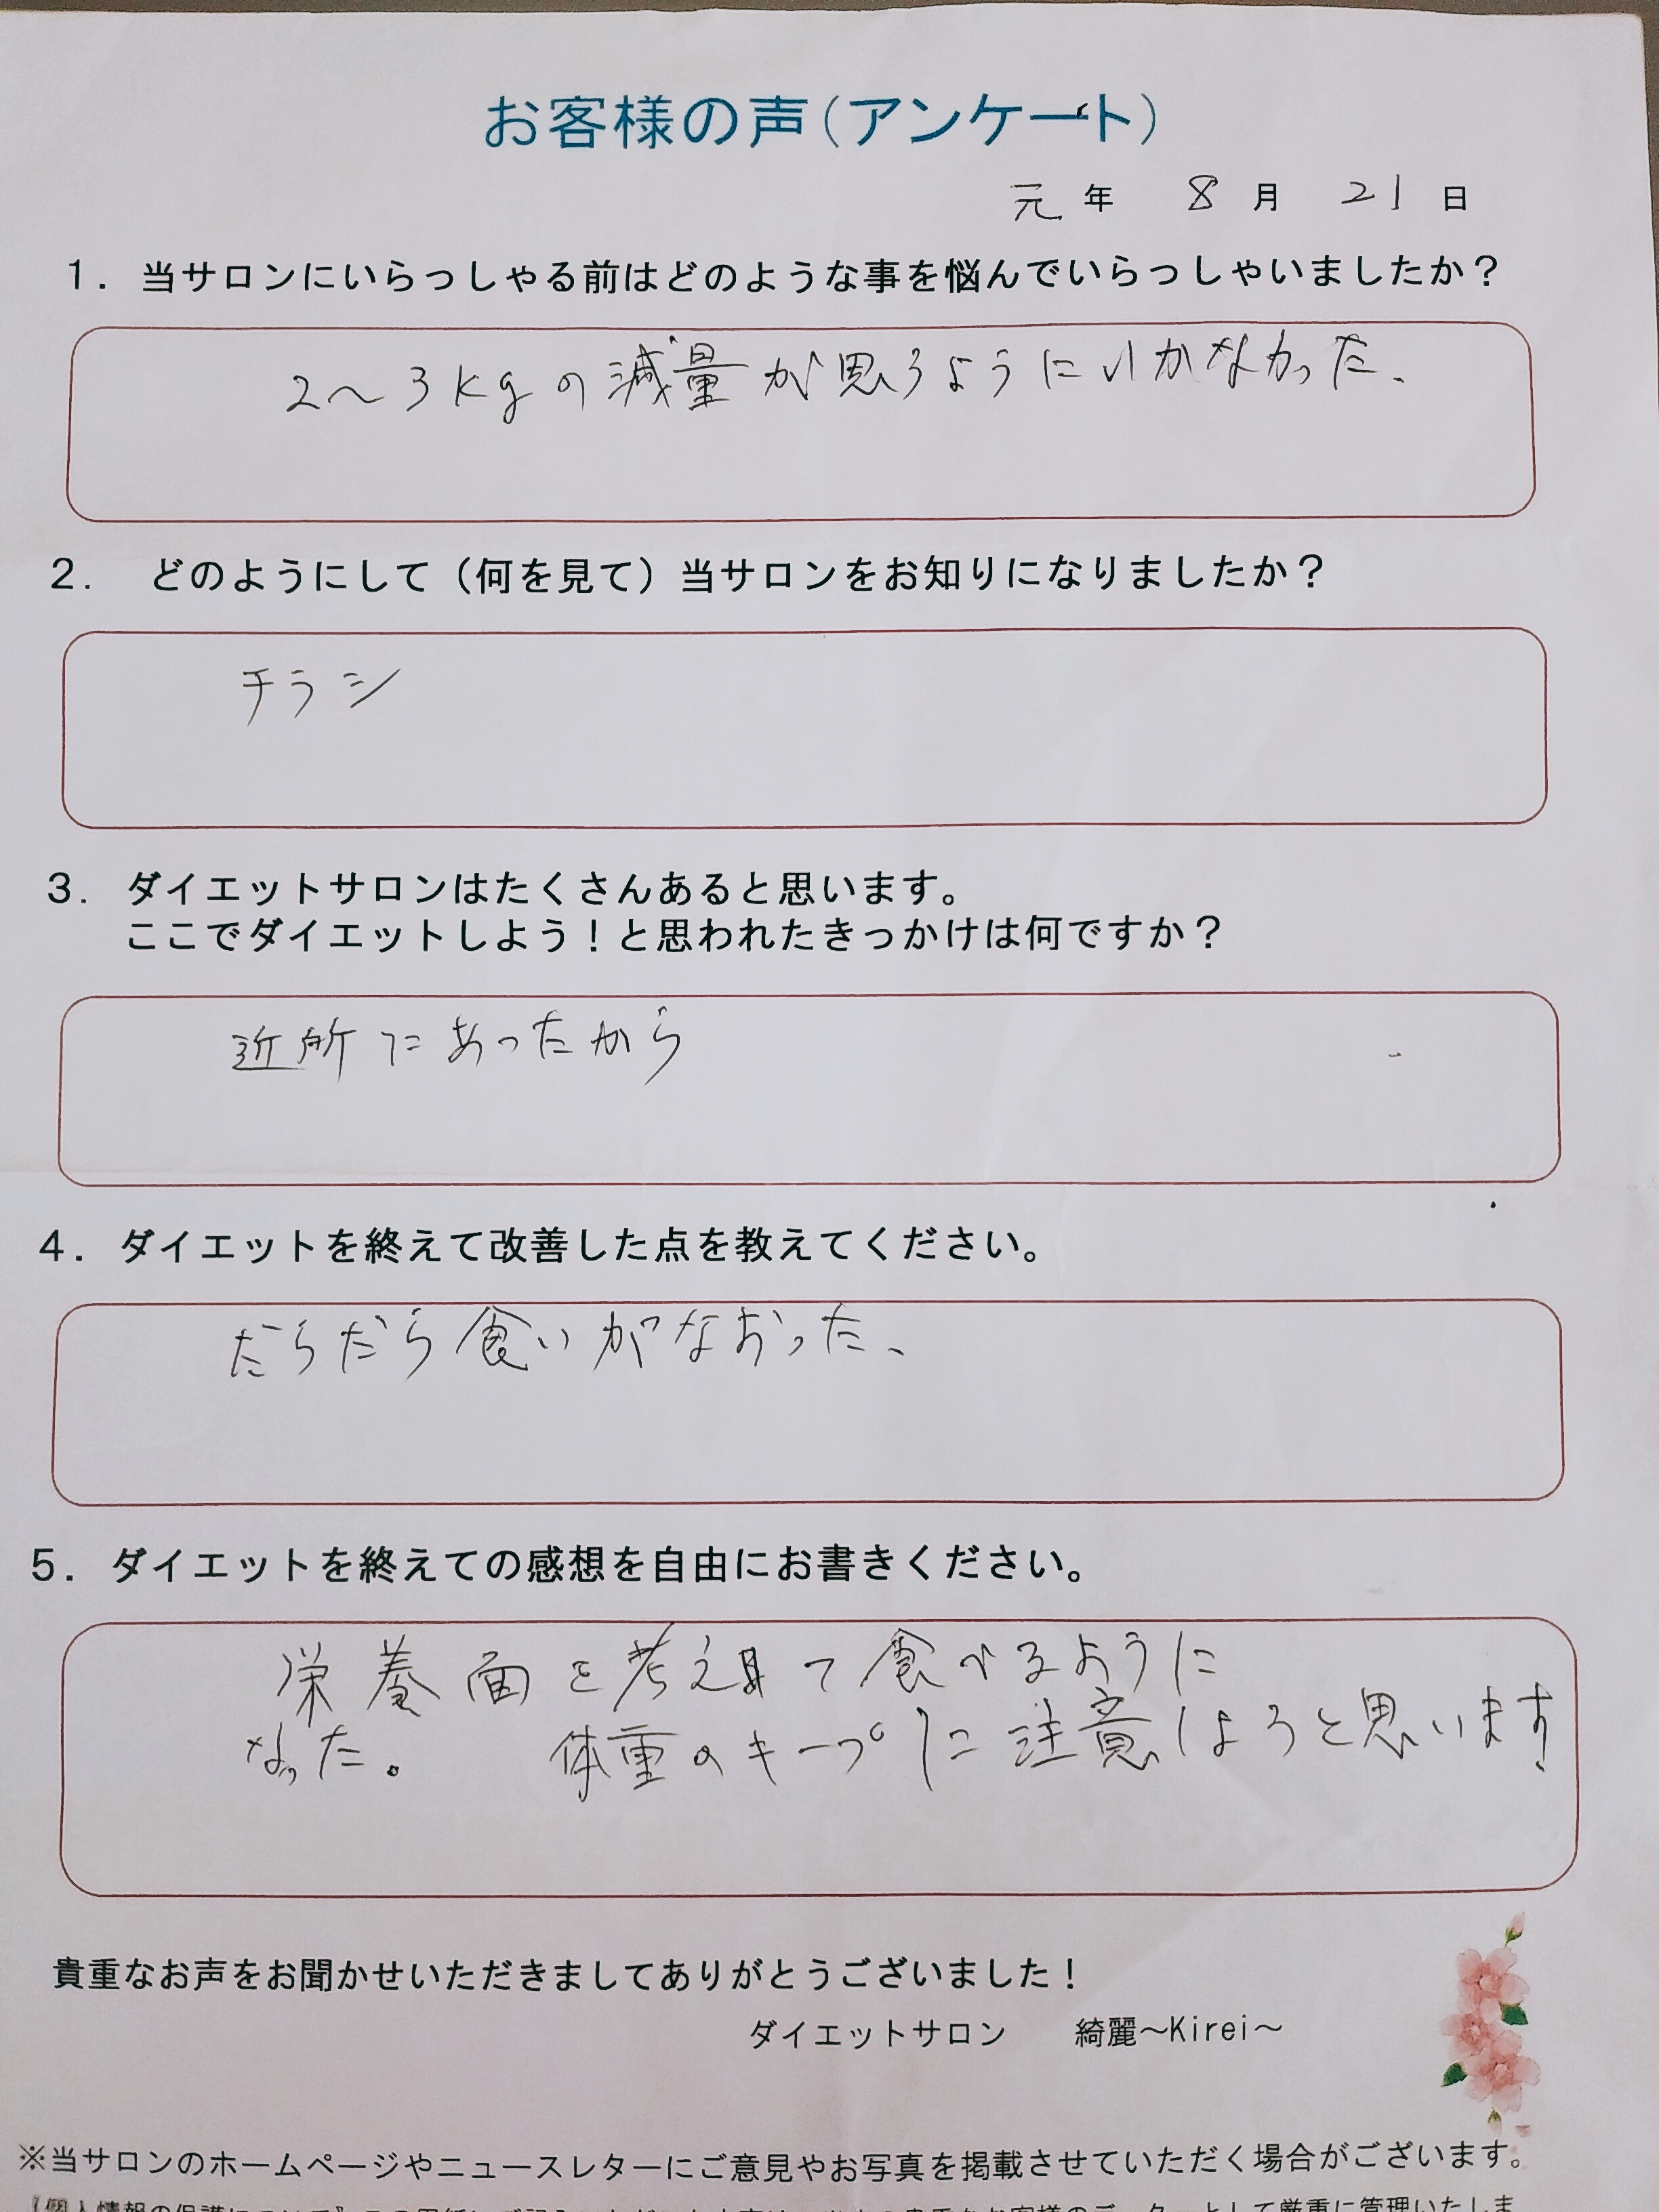 お客様の声(アンケート)
元年 8月 21日
1. 当サロンにいらっしゃる前はどのような事を悩んでいらっしゃいましたか?
2〜3kgの減量が思うようにいかなかった、
2. どのようにして(何を見て)当サロンをお知りになりましたか?
チラシ
3. ダイエットサロンはたくさんあると思います。
ここでダイエットしよう!と思われたきっかけは何ですか?
近所にあったから
4. ダイエットを終えて改善した点を教えてください。
だらだら食いがなおった、
5. ダイエットを終えての感想を自由にお書きください。
栄養面を考えて食べるように
なった。 体重のキープに注意しようと思います
貴重なお声をお聞かせいただきましてありがとうございました!
ダイエットサロン 綺麗〜Kirei〜
※当サロンのホームページやニュースレターにご意見やお写真を掲載させていただく場合がございます。